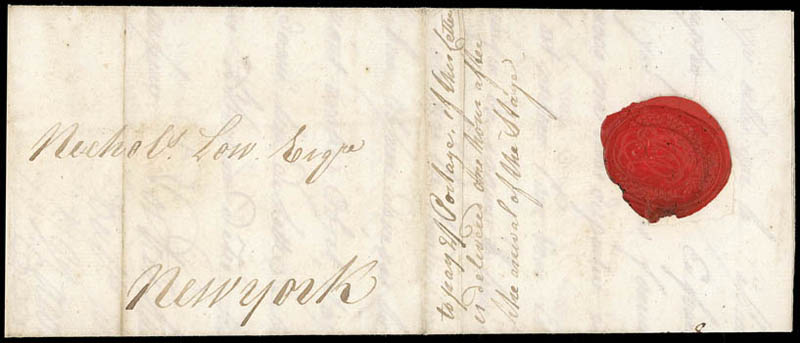 Nichols. Low. Esqre
New york
to pay 2/ Postage, if this letter
is delivered one hour after
the arrival of the Stage
8